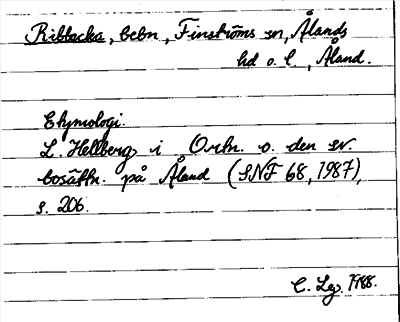 Ribbacka, bebn, Finströms sn, Ålands
hd o. l., Åland.
Etymologi.
L. Hellberg i Ortn. o. den sv.
bosättn. på Åland (SNF 68, 1987),
s. 206.
C. Lg. 1988.